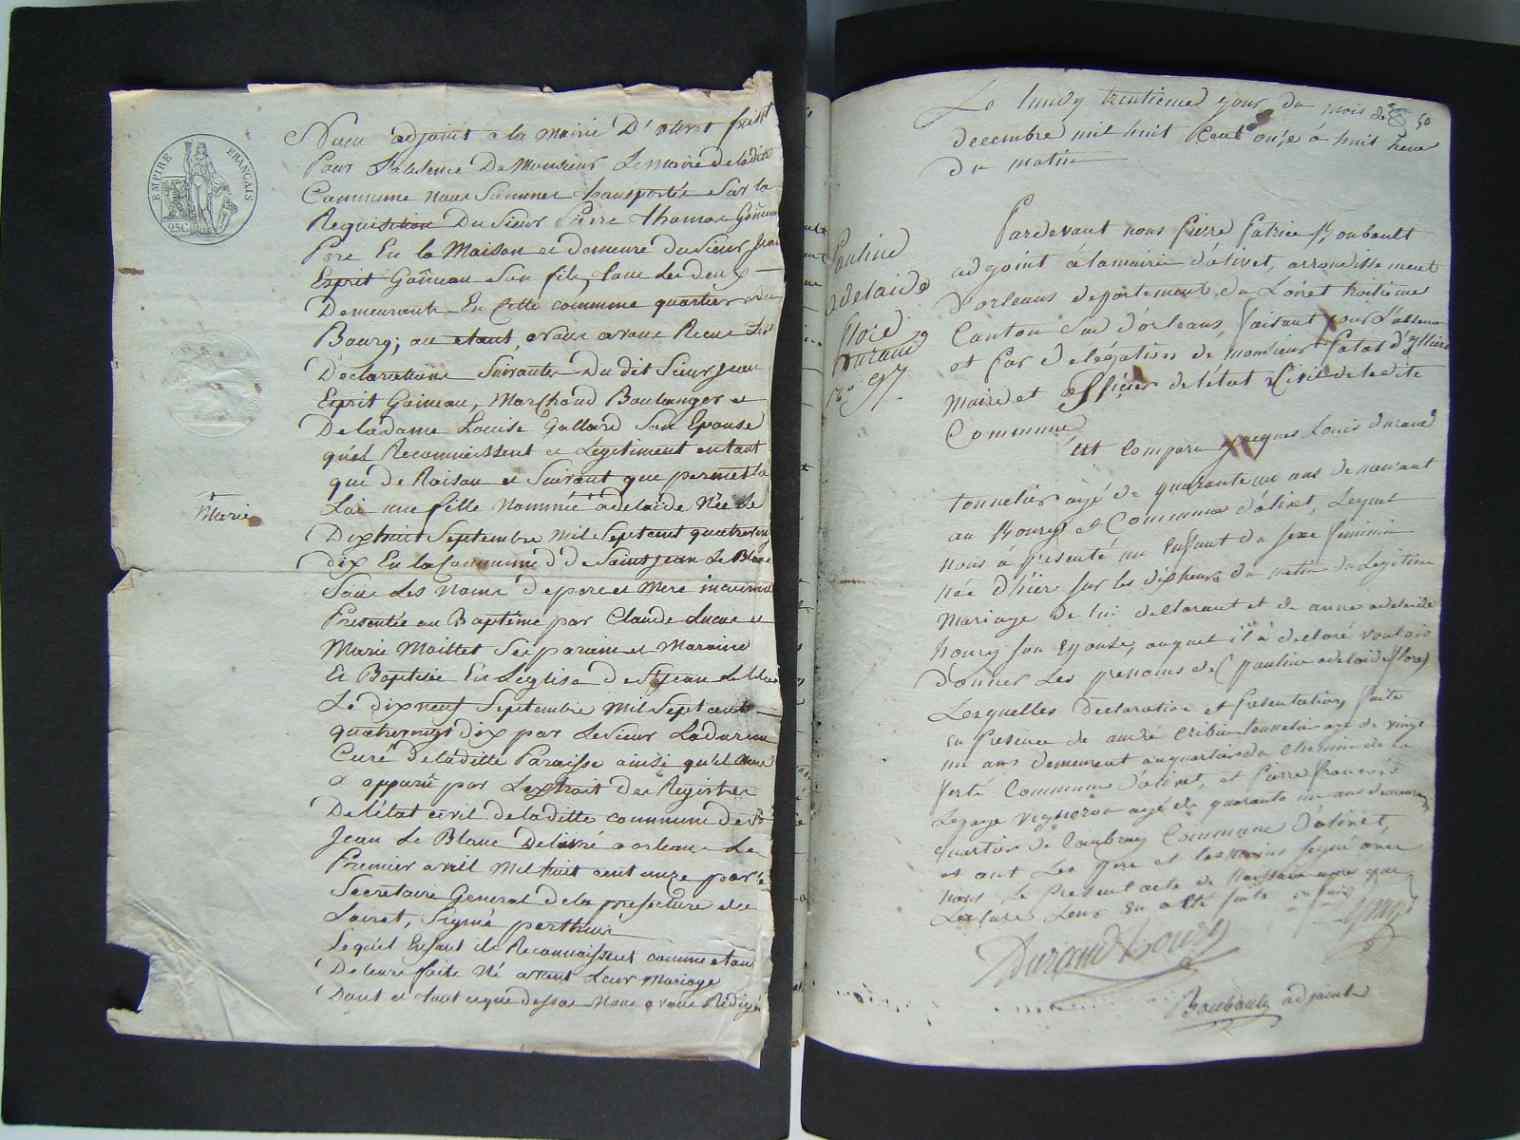 EMPIRE FRANÇAIS
25C
Nous adjoint a la Mairie D'olivet
Pour L'absence De Monsieur Le maire de ladite
Commune nous Sommes transportés Sur la
Requisition Du Sieur Pierre thomas Goineau
Pere En la Maison et demeure du Sieur Jean
Esprit Goineau Son fils, tous Les deux
Demeurants En Cette commune quartier du
Bourg; ou etant, avons Recue Les
Déclarations Suivantes Du dit Sieur Jean
Esprit Goineau, Marchand Boulanger et
De la dame Louise Gallard Son Epouse
qu'ils Reconnoissent et Legitiment autant
que de Raison et Suivant que permet la
Loi une fille Nommée adelaide Née Le
Marie
Dixhuit Septembre Mil Septcent quatrevingt
dix En la Commune de Saint Jean Le Blanc
Sous Les Noms de pere et Mere inconnus
Presentée au Baptême par Claude Lucas et
Marie Maillet Ses parain et Maraine
Et Baptisée En L'eglise de St Jean Le blanc
Le dixneuf Septembre Mil Septcent
quatrevingt dix par Le Sieur
Curé de ladite Paroisse ainsi qu'il nous
a apparu par L'extrait des Registres
De l'état civil de ladite commune de St
Jean Le Blanc Delivré a orleans Le
Premier avril Mil huit cent onze par le
Secretaire General de la prefecture du
Loiret, Signé
Lequel Enfant ils Reconnaissent comme etant
De leurs faits Né avant Leur Mariage
Dont et tout ce que dessus Nous avons Rédigé
50
Le lundy trentieme jour du mois de
decembre mil huit Cent onze a huit heure
du matin
Pardevant nous Pierre Patrice Boubault
adjoint à la mairie d'olivet, arrondissement
d'orleans departement du Loiret troisieme
Canton Sud d'orleans, faisant pour l'absence
et par délégation de monsieur Patas d'ylliers
maire et officier de l'état Civil de ladite
Commune
Pauline
adelaide
flore
Durand
est Comparu jacques Louis durand
tonnelier agé de quarante un ans demeurant
au Bourg et Commune d'olivet, Lequel
nous à presenté un Enfant du sexe feminin
née d'hier sur les dix heures du matin du Légitime
mariage de lui déclarant et de anne adelaide
houry son Epouse, auquel il à declaré vouloir
donner Les prenoms de (pauline adelaide flore)
Lesquelles Déclaration et presentation, faite
en presence de andré tonnelier agé de vingt
un ans demeurant au quartier du Chemin de la
ferté Commune d'olivet, et Pierre francois
Lepage vigneron agé de quarante un ans demeurant
quartier de Commune d'olivet,
et ont Les pere et temoins signé avec
nous Le Present acte de Naissance apres que
Lecture Leur En a été faite
Durand houry
Lepage
Boubault adjoint